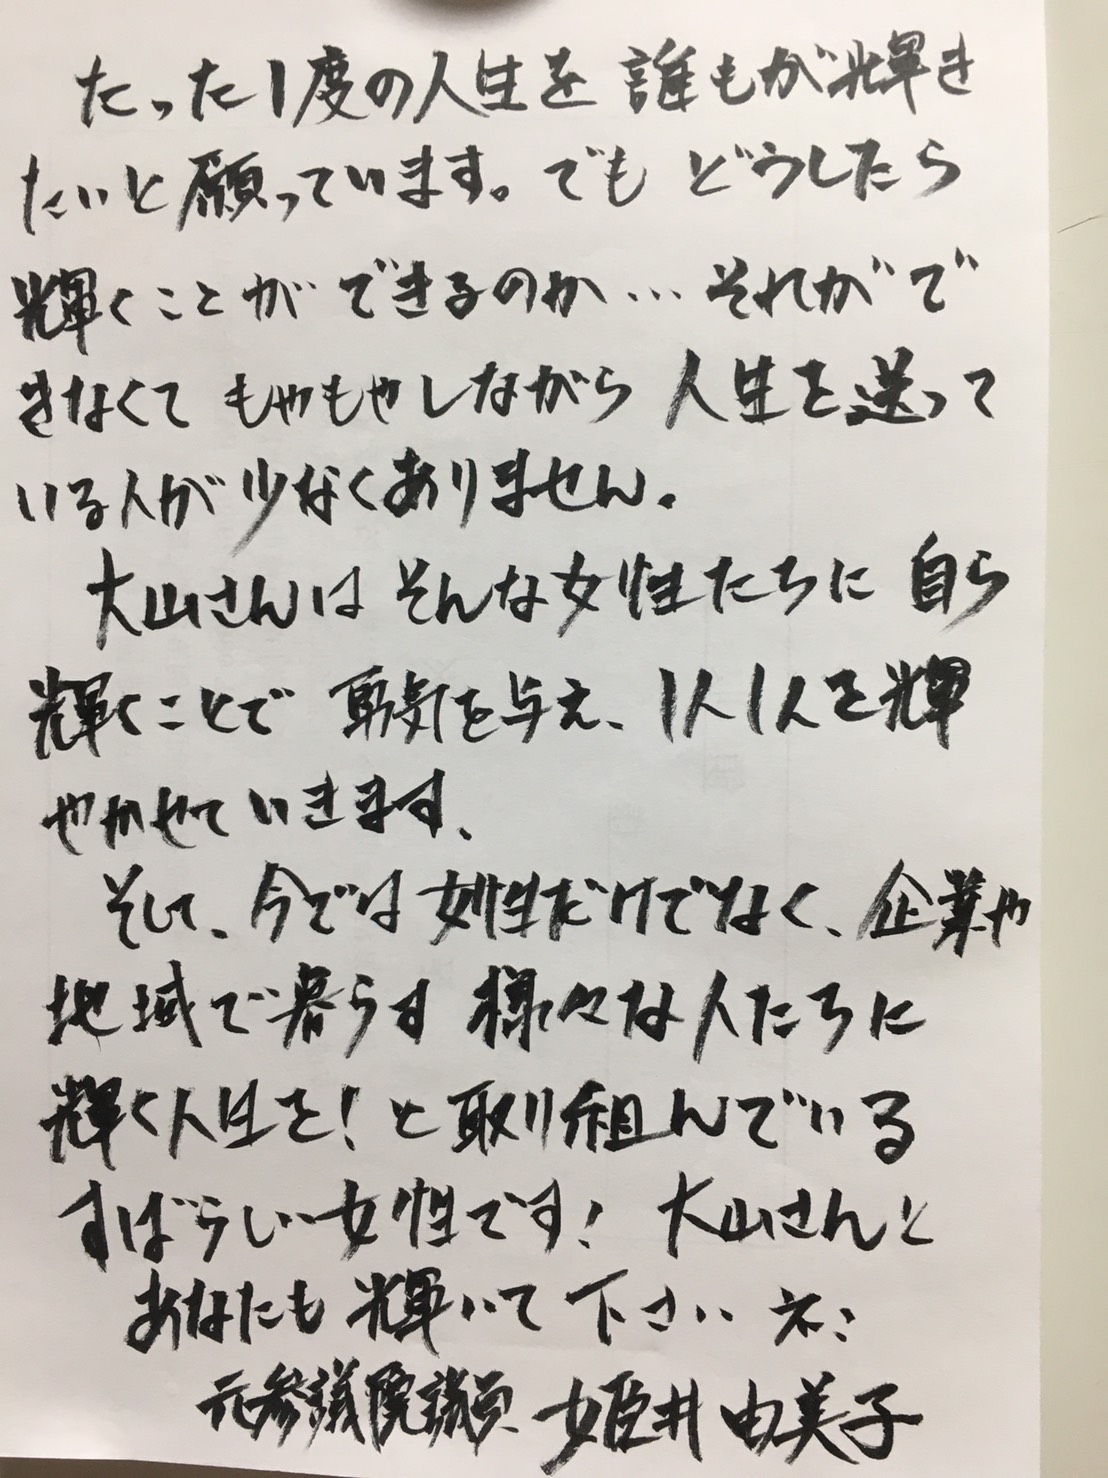 たった1度の人生を 誰もが輝き
たいと願っています。でも どうしたら
輝くことが できるのか… それがで
きなくて もやもやしながら 人生を送って
いる人が 少なくありません。
大山さんは そんな女性たちに 自ら
輝くことで 勇気を与え、1人1人を輝
やかせていきます、
そして、今では 女性だけでなく、企業や
地域で暮らす 様々な人たちに
輝く人生を! と 取り組んでいる
すばらしい女性です! 大山さんと
あなたも 輝いて 下さいネ:
元参議院議員 姫井由美子